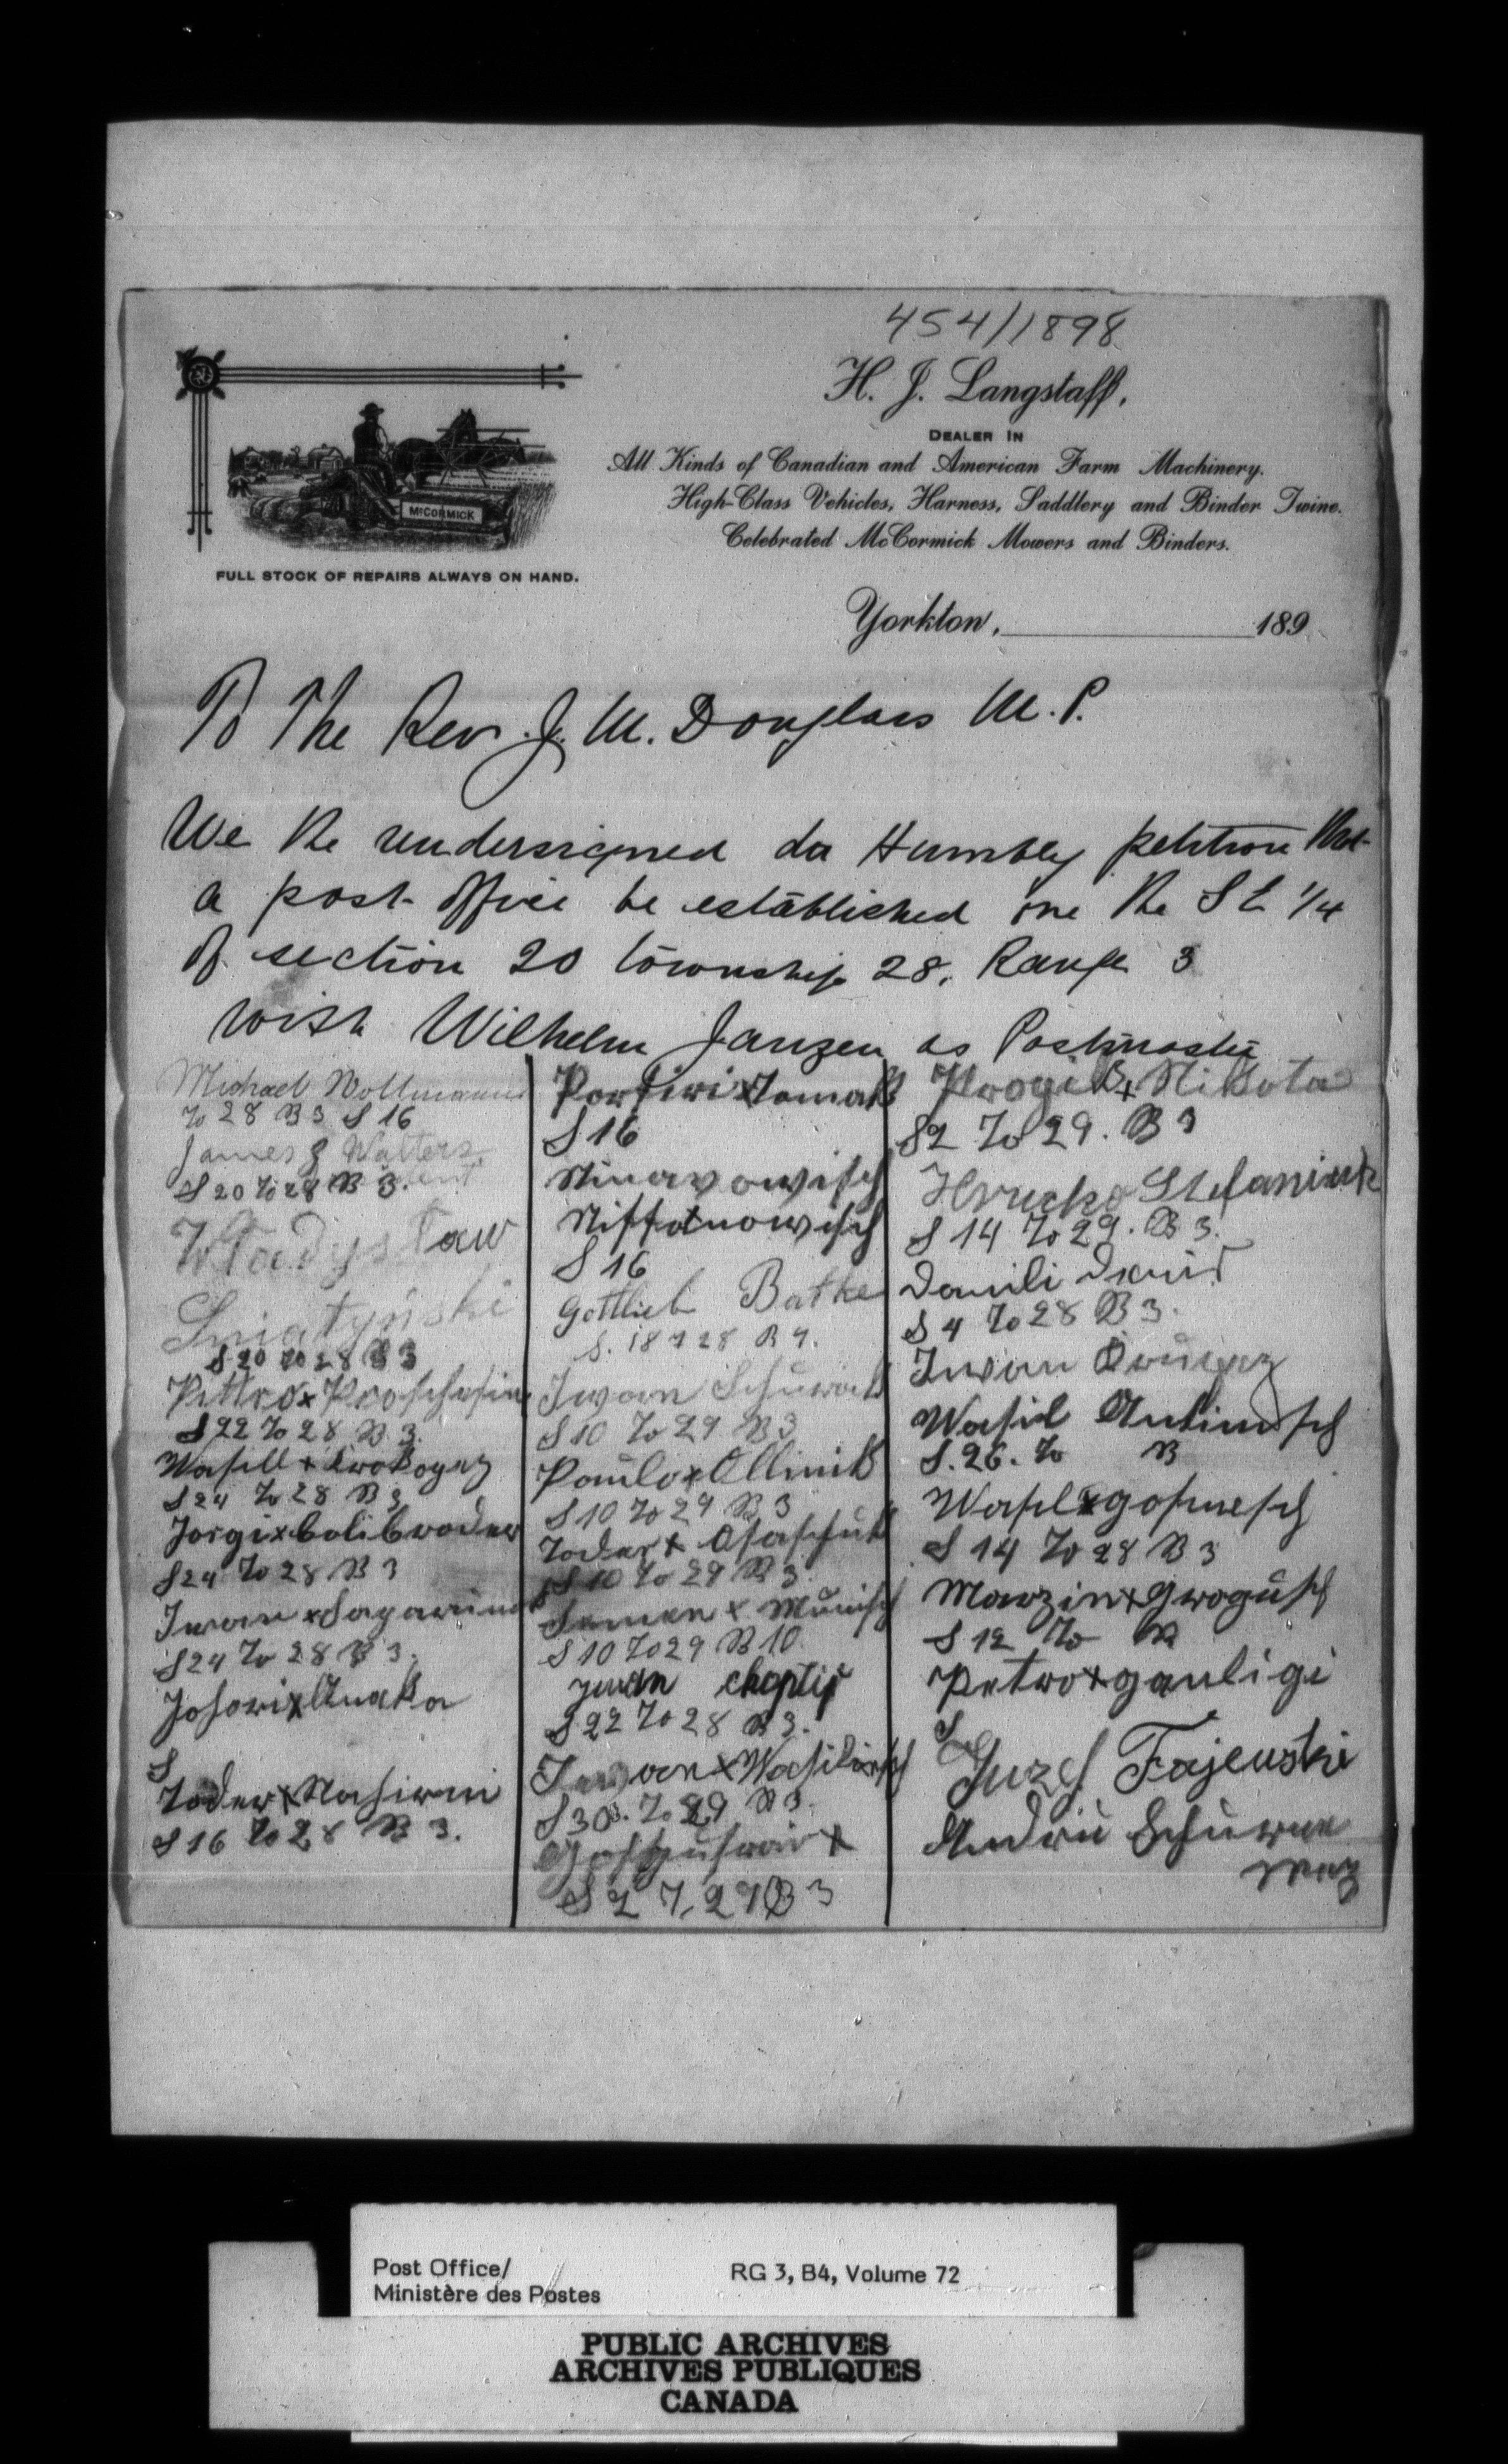 454/1898
H. J. Langstaff,
DEALER IN
All Kinds of Canadian and American Farm Machinery.
High-Class Vehicles, Harness, Saddlery and Binder Twine.
Celebrated McCormick Mowers and Binders.
McCORMICK
FULL STOCK OF REPAIRS ALWAYS ON HAND.
Yorkton, 189
To The Rev. J. M. Douglas M. P.
We the undersigned do Humbly petition that
a post office be established one the S E 1/4
of section 20 township 28, Range 3
with Wilhelm Janzen as Postmaster
Michael Wollmann
To 28 R 3 S 16
James J Walters
S 20 To 28 R 3.
Władysław
Sniatyński
S 20 To 28 R 3
Pettro x
S 22 To 28 R 3.
Wasill x
S 24 To 28 R 3
Jorgi x bolibroder
S 24 To 28 R 3
Iwan x
S 24 To 28 R 3.
x
S
Toder x Nasirni
S 16 To 28 R 3.
Porfiri x Tomak
S 16
S 16
Gottlieb Batke
S. 18 T 28 R 4.
Iwan Schuwak
S 10 To 29 R 3
Paulo x Ollinik
S 10 To 29 R 3
Toder x
S 10 To 29 R 3.
Semen x Munisch
S 10 To 29 R 10
Iwan
S 22 To 28 R 3.
Iwan x
S 30. To 29 R 3.
x
S 2 T. 29 R 3
x Nikota
S 2 To 29. R 3
Hrucko Stefaniuk
S 14 To 29. R 3.
Danili
S 4 To 28 R 3.
Iwan
Wasil
S. 26. To R
Wasil x
S 14 To 28 R 3
Marzin x
S 12 To R
Petro x gauligi
S
Juzef Fajeuski
Andru
Post Office/
Ministère des Postes
RG 3, B4, Volume 72
PUBLIC ARCHIVES
ARCHIVES PUBLIQUES
CANADA